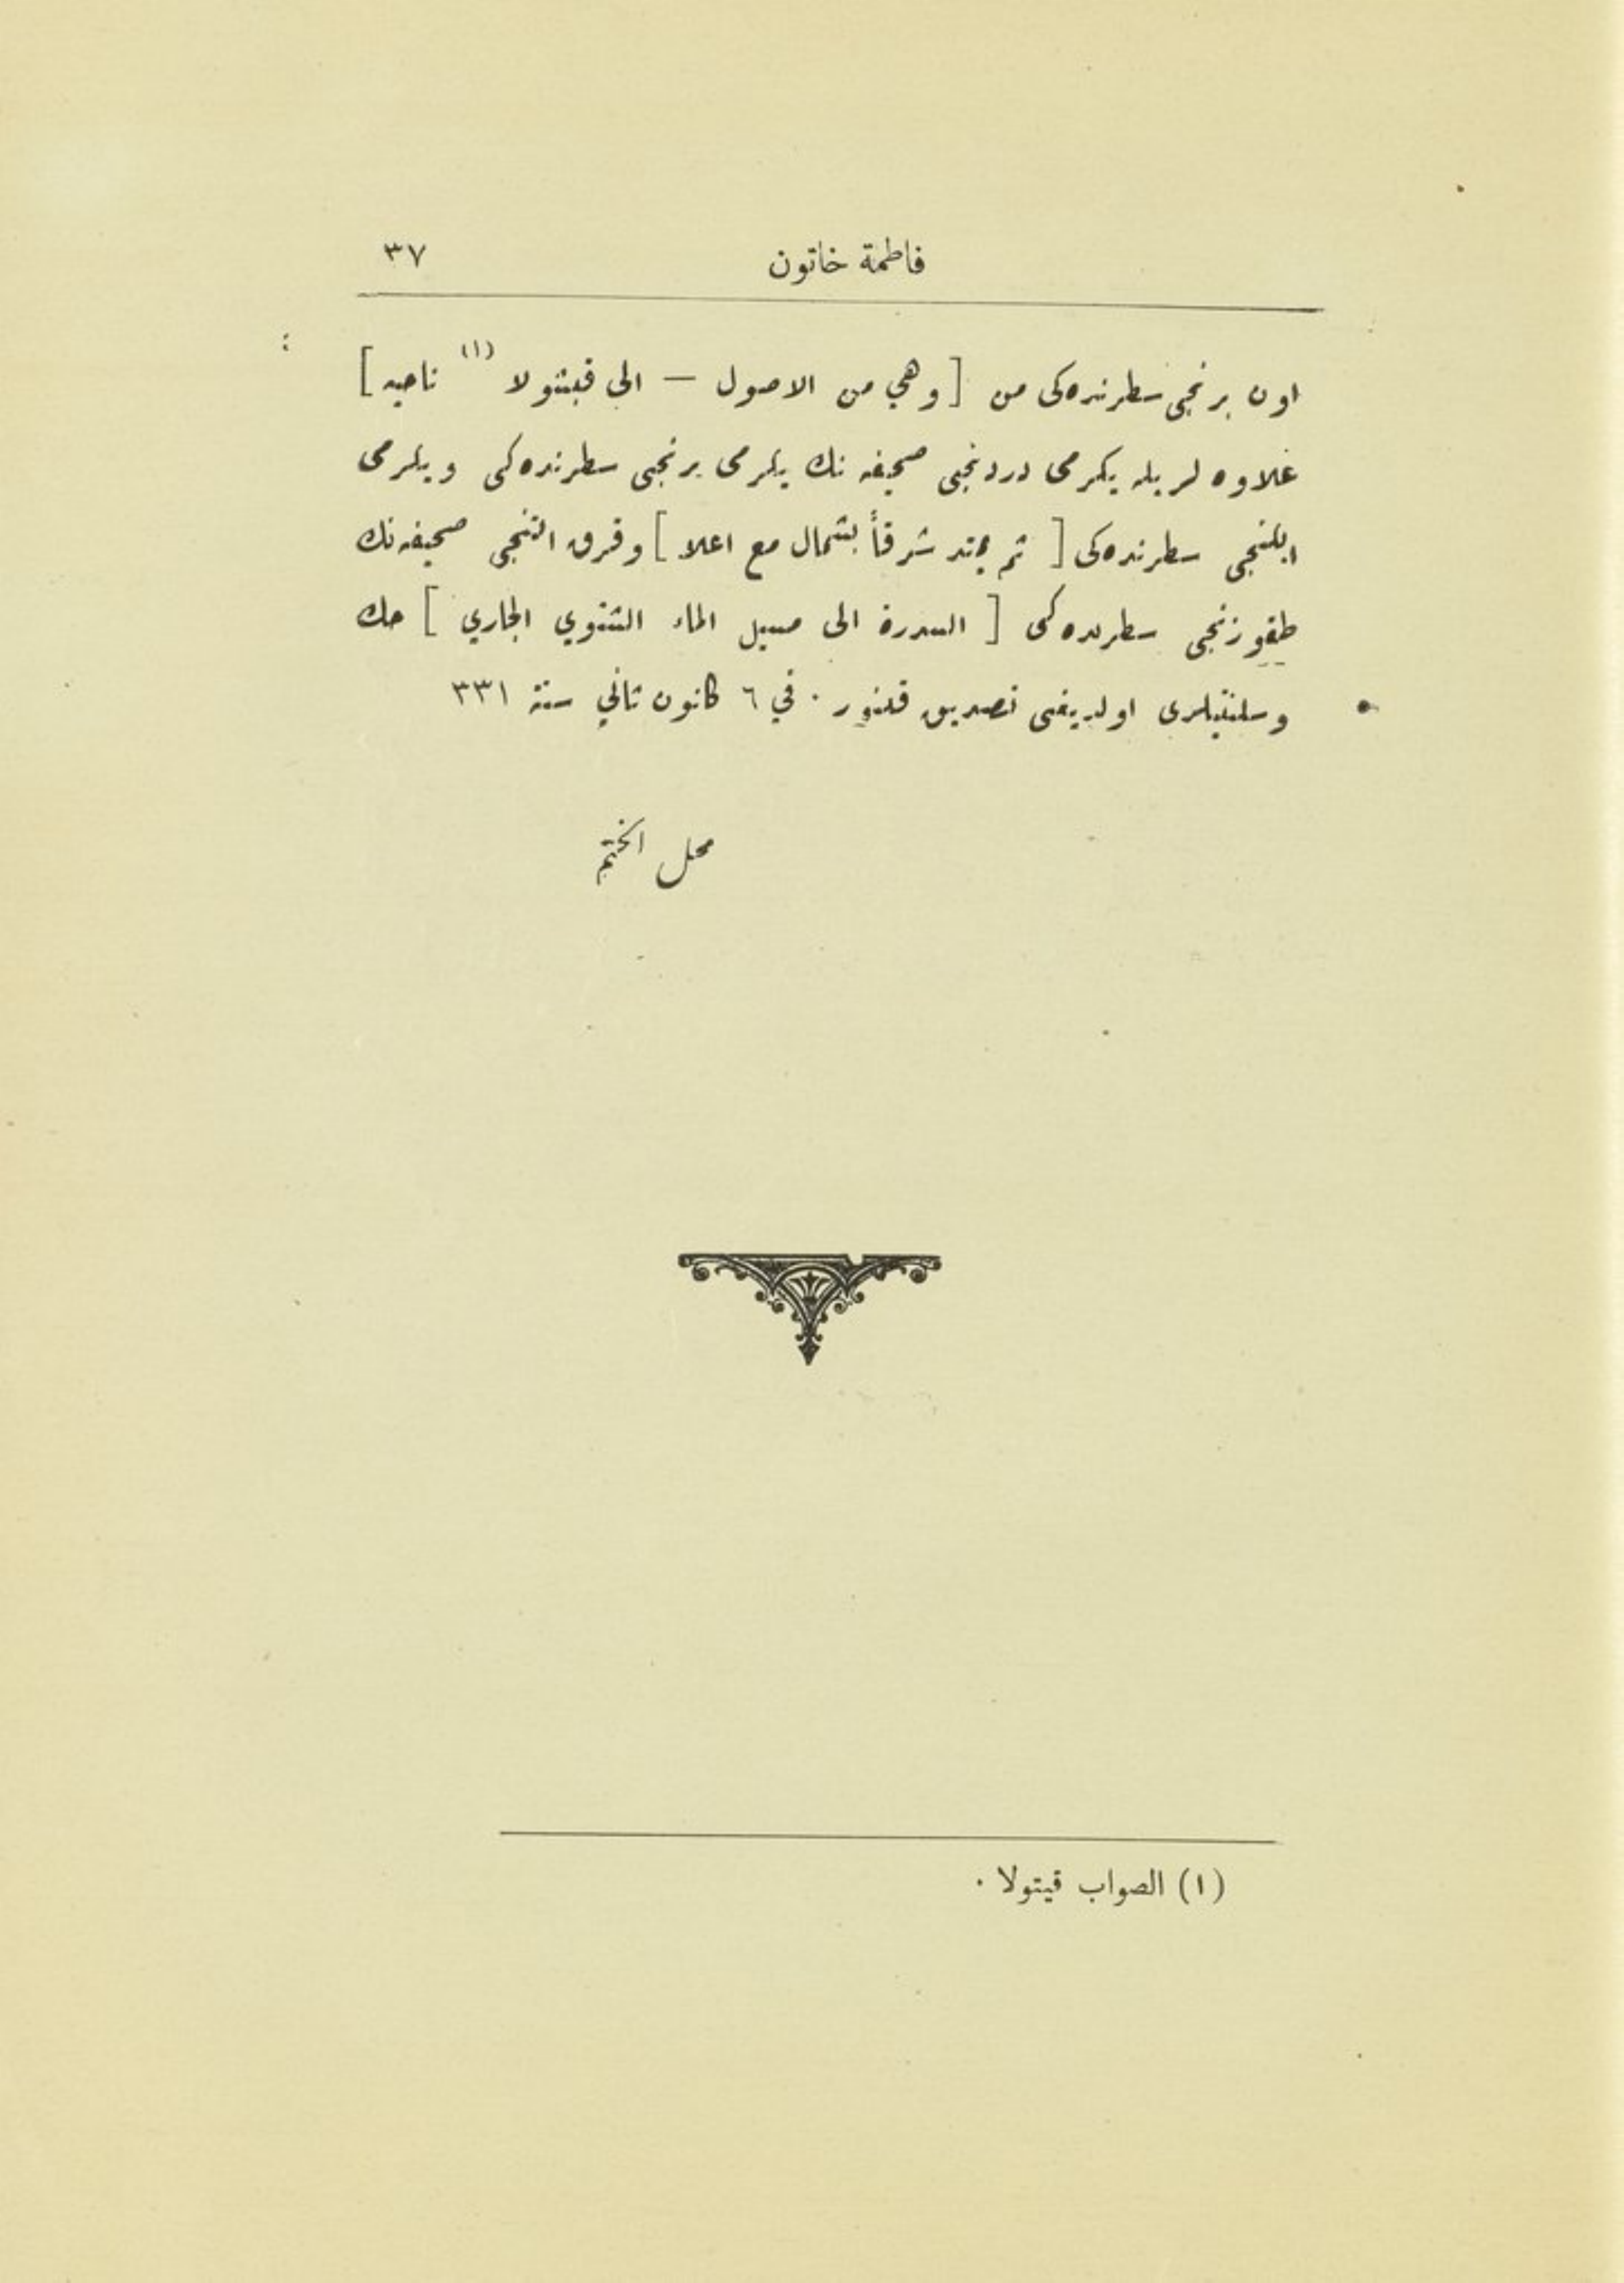 فاطمة خاتون ٣٧
اون برنجى سطرنده‌كى من [ وهي من الاصول — الى قيشولا (١) ناحيه ]
علاوه لر يله يكرمى دردنجى صحيفه نك يكرمى برنجى سطرنده‌كى ويكرمى
ايكنجى سطرنده‌كى [ ثم يمتد شرقاً بشمال مع اعلا ] وقرق التنجى صحيفه‌نك
طقوزنجى سطرنده‌كى [ السدرة الى مسيل الماء الشتوي الجاري ] حك
وسلنتيلرى اولديغى تصديق قلنور . في ٦ كانون ثاني سنة ٣٣١
محل الختم
(١) الصواب قيتولا .